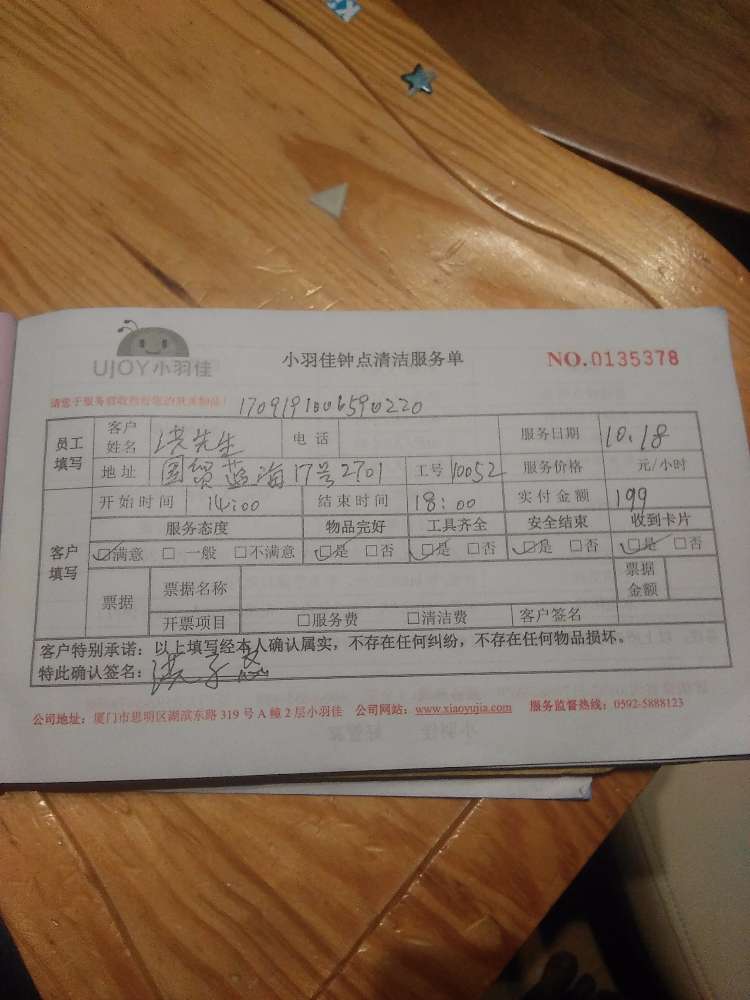 UJOY小羽佳 小羽佳钟点清洁服务单 NO.0135378
1709191006590220
员工填写 客户姓名 洪先生 电话 服务日期 10.18
地址 国贸蓝海17号2701 工号 10052 服务价格 元/小时
客户填写 开始时间 14:00 结束时间 18:00 实付金额 199
服务态度 物品完好 工具齐全 安全结束 收到卡片
☑满意 □一般 □不满意 ☑是 □否 ☑是 □否 ☑是 □否 ☑是 □否
票据 票据名称 票据金额
开票项目 □服务费 □清洁费 客户签名
客户特别承诺：以上填写经本人确认属实，不存在任何纠纷，不存在任何物品损坏。
特此确认签名：洪子
公司地址：厦门市思明区湖滨东路 319 号 A 幢 2 层小羽佳 公司网站：www.xiaoyujia.com 服务监督热线：0592-5888123